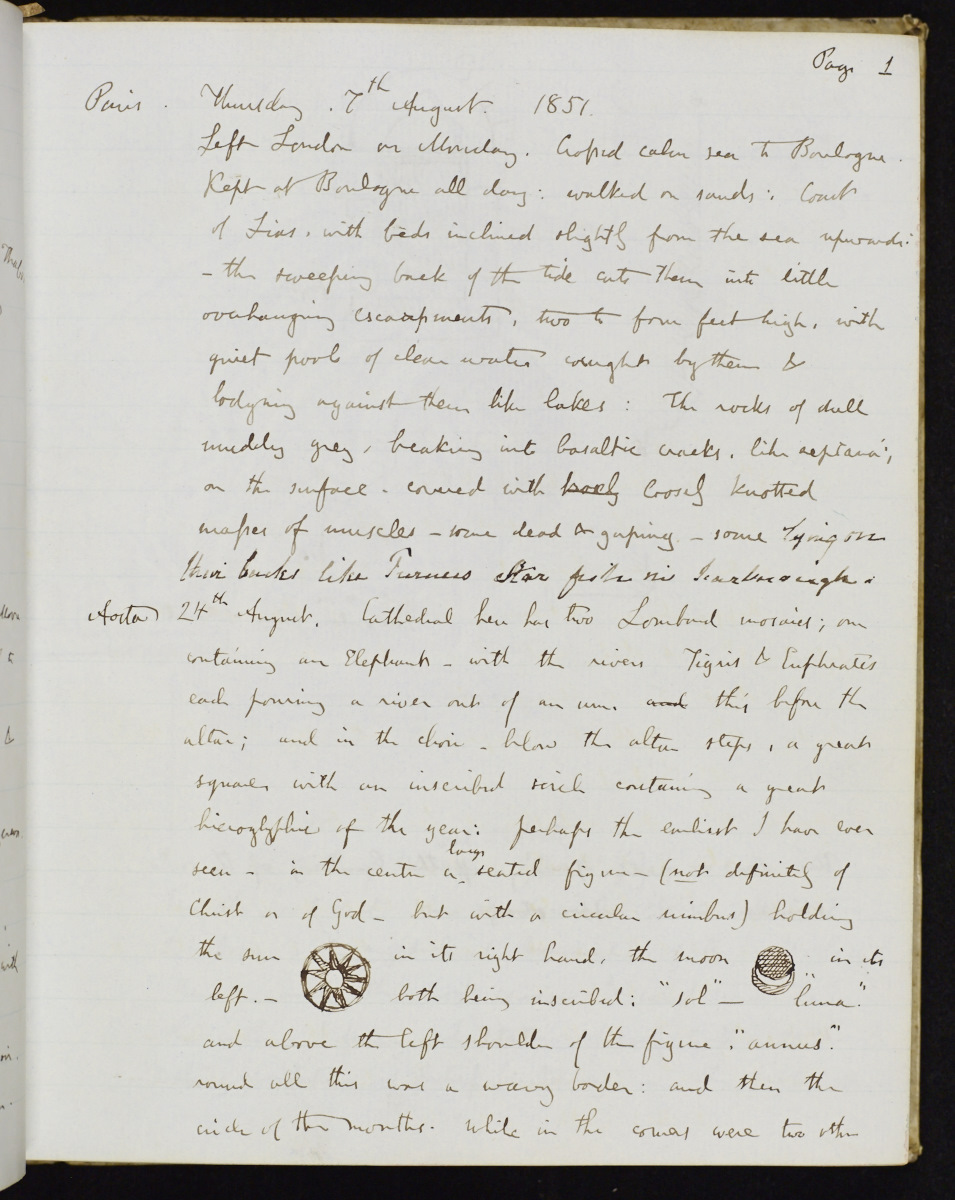 Page 1
Paris. Thursday. 7th August. 1851.
Left London on Monday. Crossed calm sea to Boulogne.
Kept at Boulogne all day: walked on sands: Coast
of Lias, with beds inclined slightly from the sea upwards:
- the sweeping back of the tide cuts them into little
overhanging escarpments, two to four feet high, with
quiet pools of clear water caught by them &
lodging against them like lakes: The rocks of dull
muddy grey, breaking into basaltic cracks, like septaria;
on the surface. covered with loosely knotted
masses of muscles - some dead & gaping - some lying on
their backs like Turners Star fish in Scarborough.
Aosta 24th August. Cathedral here has two Lombard mosaics; one
containing an Elephant - with the rivers Tigris & Euphrates
each pouring a river out of an urn. and this before the
altar; and in the choir - below the altar steps, a great
square with an inscribed circle containing a great
hieroglyphic of the year: perhaps the earliest I have ever
seen - in the centre a large seated figure - (not definitely of
Christ or of God - but with a circular nimbus) holding
the sun in its right hand, the moon in its
left. - both being inscribed: "sol" - "luna".
and above the left shoulder of the figure, "annus".
round all this was a wavy border: and then the
circle of the months. while in the corners were two other